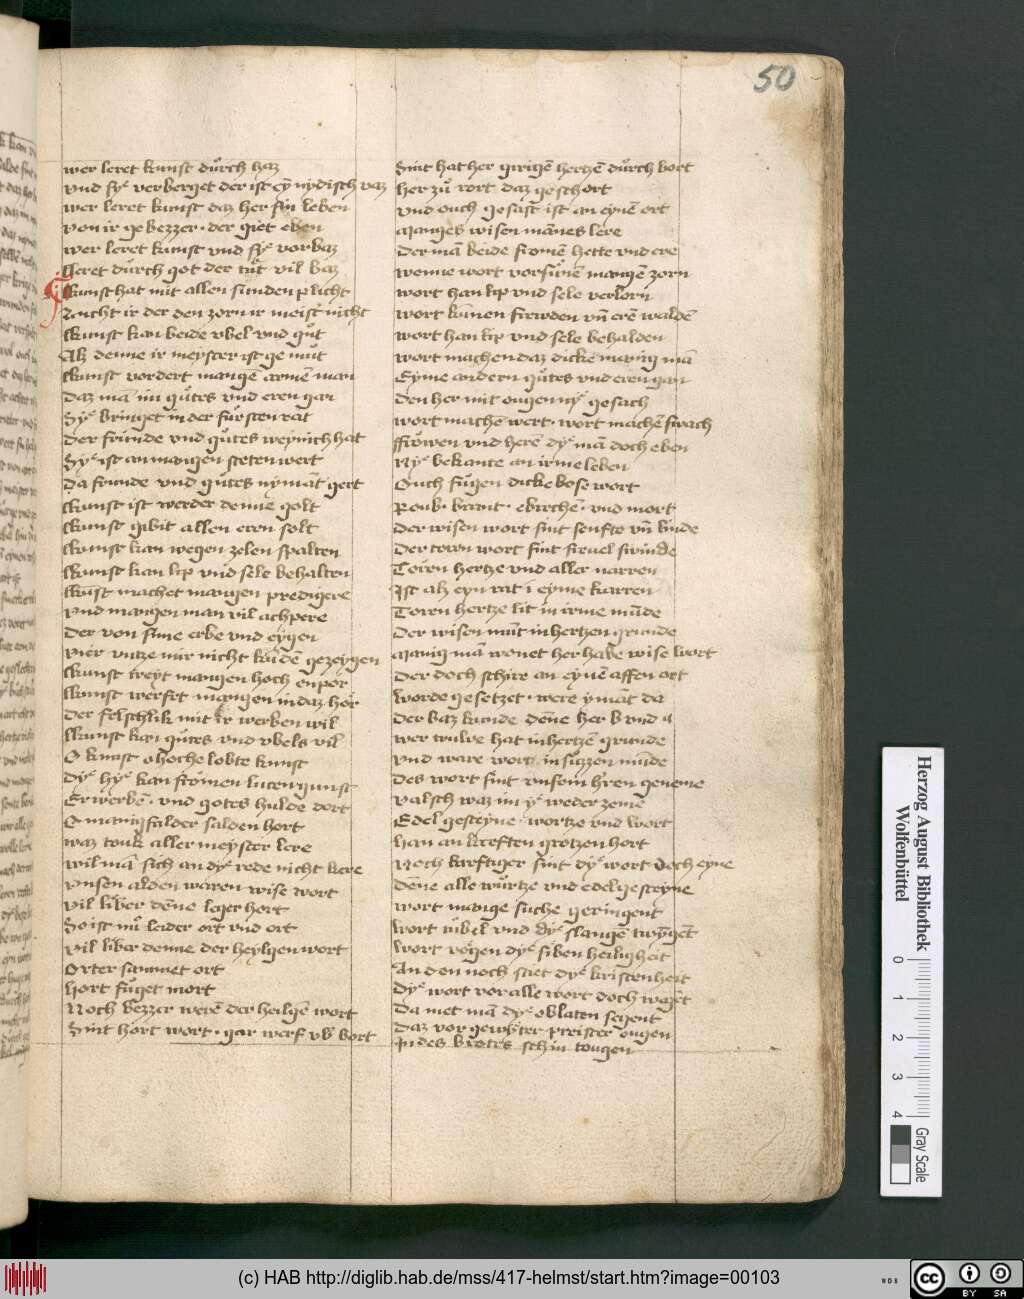 50
wer leret kunst důrch haz
vnd sye verberget der ist eȳ nydisch vaz
wer leret kunst daz her sin leben
von ir ge bezzer · der giet eben
wer leret kunst vnd sye vorbaz
lleret důrch got der tůt vil baz
kunst hat mit allen sunden plicht
Zucht ir der den zorn ir meist nicht
kunst kan beide vbel vnd gůt
Alz denne ir meyster ist ge můt
kunst vordert mangē armē man
Daz mā im gůtes vnd eren gan
Sye bringet in der fůrsten rat
Der frůnde vnd gůtes weynich hat
Sye ist an mangen steten wert
Da frunde vnd gůtes nymāt gert
kunst ist werder denne golt
kunst gibit allen eren solt
kunst kan wegen zelen spalten
kunst kan lip vnd sele behalten
kunst machet mangen predigere
vnd mangen man vil achpere
Der von sime erbe vnd eygen
vier vntze mir nicht kůdē gezeygen
kunst treyt mangen hoch enpor
kunst werfet mangen in daz hor
Der felschlik mit ir werben wil
kunst kan gůtes vnd vbels vil
O kunst o hoche lobte kunst
Dye hye kan frōmen luten gunst
Erwerbē · vnd gotes hulde dort
O manigfalder salden hort
waz touk aller meyster lere
wil mā sich an dye rede nicht kere
vnsen alden waren wise wort
vil liber dēne leger hort
So ist nů leider ort vnd ort
vil liber denne der heylgen wort
Orter sammet ort
Hort fůget mort
Noch bezzer werē der heilgē wort
Sint hort wort · gar werf vbʼ bort
Sint hat her girigē hertzē důrch bort
her zů rort daz geschort
vnd ouch gesast ist an eynē ort
Manges wisen mānes lere
Der mā beide fromē hette vnd ere
wenne wort vorsůnē mangē zorn
wort han lip vnd sele verlorn
wort kůnen frewden vn̄ erē waldē
wort han lip vnd sele behalden
wort machen daz dicke manig mā
Eyme andern gůtes vnd eren gan
Den her mit ougen nye gesach
wort machē wert · wort machē swach
ffrowen vnd herē dye mā doch eben
Nye bekante an irme leben
Ouch fůgen dicke bose wort
Roub · brant · ebrechē · vnd mort
Der wisen wort sint senfte vn̄ linde
Der toren wort sint freuel swinde
Toren hertze vnd aller narren
Ist alz eyn rat i eyme karren
Toren hertze lit in irme mūde
Der wisen mūt in hertzen grunde
Manig mā wonet her habe wise wort
Der doch schire an eynē affen ort
Worde gesetzet · were ymāt da
Der baz kunde dēne her b vnd a
wer trůwe hat in hertzē grunde
vnd ware wort in sůzzen mūde
Des wort sint vnsem hʼren geneme
valsch waz im ye weder zeme
Edel gesteyne · wortze vnd wort
Han an kreften grozen hort
Noch kreftiger sint dye wort doch eyne
Dēne alle wůrtze vnd edel gesteyne
wort mange suche geringent
wort ůbel vnd dye slangē twȳgēt
wort vogen dye siben heilikheit
An den noch stet dye kristenheit
Dye wort vor alle wort doch wagēt
Da met mā dye oblaten segent
Daz vor gewyter prister ougen
In des brotes schin tougen
Herzog August Bibliothek
Wolfenbüttel
0 1 2 3 4
Gray Scale
(c) HAB http://diglib.hab.de/mss/417-helmst/start.htm?image=00103
WDB
cc
BY SA